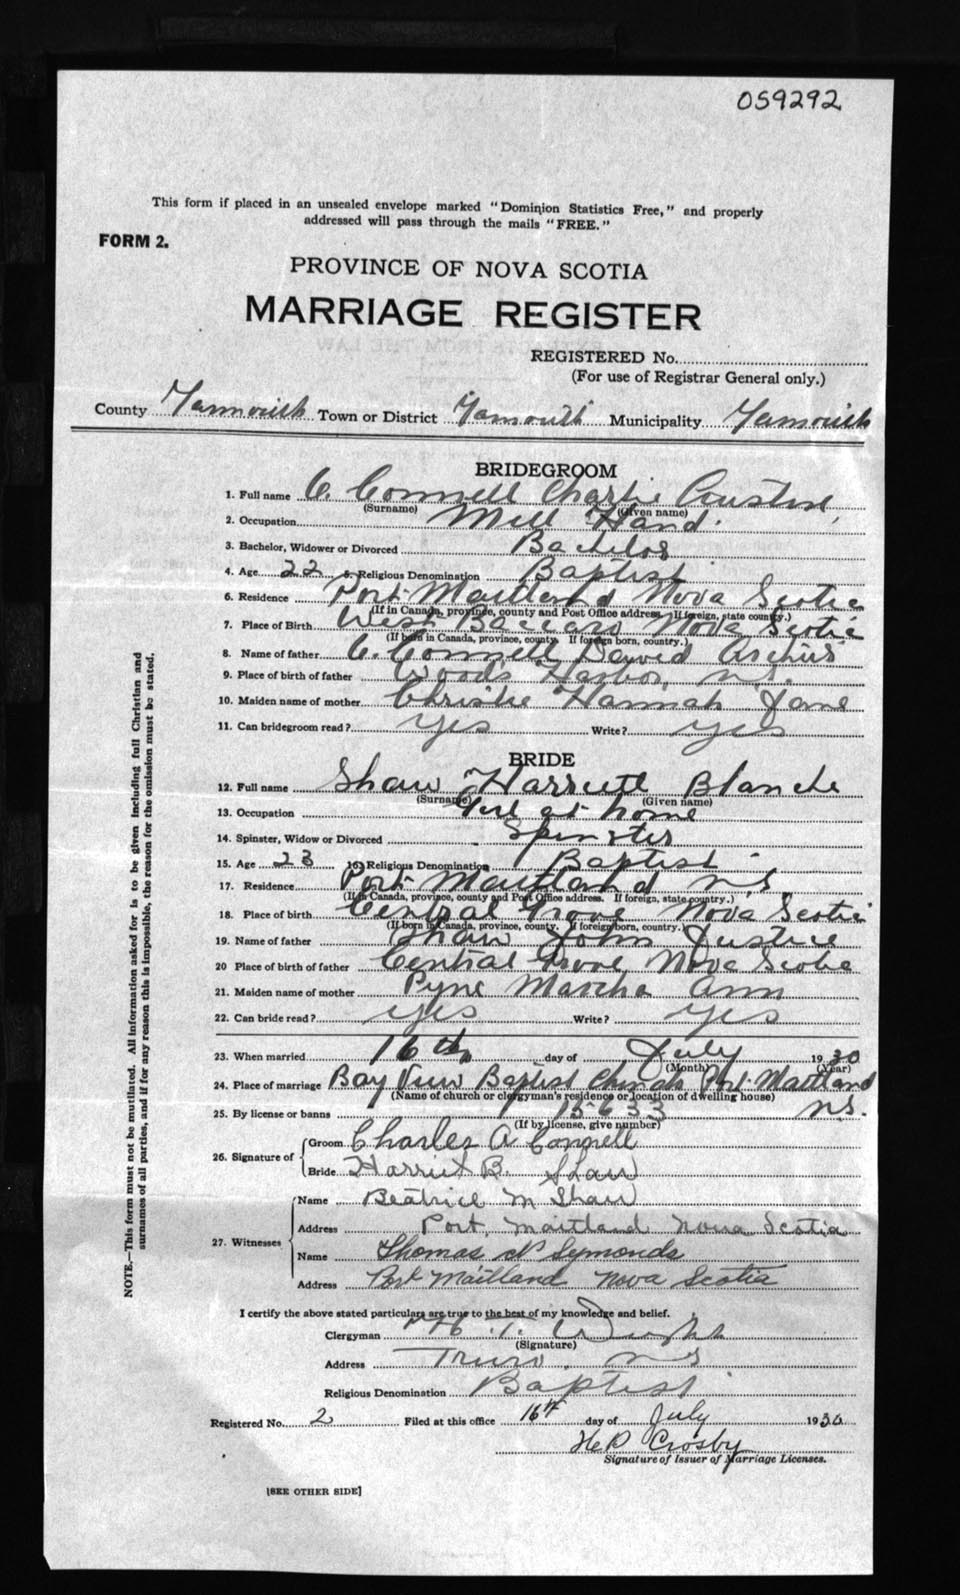 059292
This form if placed in an unsealed envelope marked "Dominion Statistics Free," and properly
addressed will pass through the mails "FREE."
FORM 2.
PROVINCE OF NOVA SCOTIA
MARRIAGE REGISTER
REGISTERED No.
(For use of Registrar General only.)
County Yarmouth Town or District Yarmouth Municipality Yarmouth
BRIDEGROOM
1. Full name O'Connell Charlie
(Surname) (Given name)
2. Occupation Mill Hand.
3. Bachelor, Widower or Divorced Bachelor
4. Age 22 5. Religious Denomination Baptist
6. Residence Port Maitland Nova Scotia
(If in Canada, province, county and Post Office address. If foreign, state county.)
7. Place of Birth West Baccaro Nova Scotia
(If born in Canada, province, county. If foreign born, country.)
8. Name of father O'Connell David
9. Place of birth of father Woods Harbor, N.S.
10. Maiden name of mother Christie Hannah Jane
11. Can bridegroom read? yes Write? yes
BRIDE
12. Full name Shaw Harriett Blanche
(Surname) (Given name)
13. Occupation Girl at home
14. Spinster, Widow or Divorced Spinster
15. Age 23 16. Religious Denomination Baptist
17. Residence Port Maitland N.S.
(If in Canada, province, county and Post Office address. If foreign, state country.)
18. Place of birth Central Grove Nova Scotia
(If born in Canada, province, county. If foreign born, country.)
19. Name of father Shaw John Justice
20 Place of birth of father Central Grove Nova Scotia
21. Maiden name of mother Pyne Marcha Ann
22. Can bride read? yes Write? yes
23. When married 16th day of July 1930
(Month) (Year)
24. Place of marriage Bay View Baptist Church Port Maitland
(Name of church or clergyman's residence or location of dwelling house) N.S.
25. By license or banns 15633
(If by license, give number)
26. Signature of
Groom Charles A Connell
Bride Harriet B. Shaw
27. Witnesses
Name Beatrice M Shaw
Address Port Maitland Nova Scotia
Name Thomas N Symonds
Address Port Maitland Nova Scotia
I certify the above stated particulars are true to the best of my knowledge and belief.
Clergyman Wright
(Signature)
Address Truro, N S
Religious Denomination Baptist
Registered No. 2 Filed at this office 16th day of July 1930
H P Crosby
Signature of Issuer of Marriage Licenses.
[SEE OTHER SIDE]
NOTE.—This form must not be mutilated. All information asked for is to be given including full Christian and
surnames of all parties, and if for any reason this is impossible, the reason for the omission must be stated.